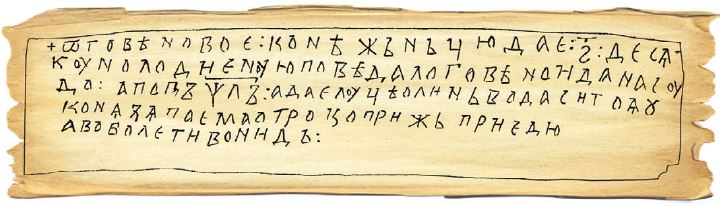 + ѾГОВѢNОВОЕ:КОNѢЖЬNЪЦЮДАЕ:Г҃:ДЕСѦ-
КОУNОЛОДНЕNУЮПОВѢДАЛОГОВѢNОНДАNАСОУ
ДО:АПОПЪѰЛЪ:АДАЕЛОУЦѢОЛННЬВОДАСНТОѦУ
КОNѦѮѦПАЕМАОТРОЦОПРНЖЬПРНЕДЮ
АВОБОЛЕТНВОННДЪ: